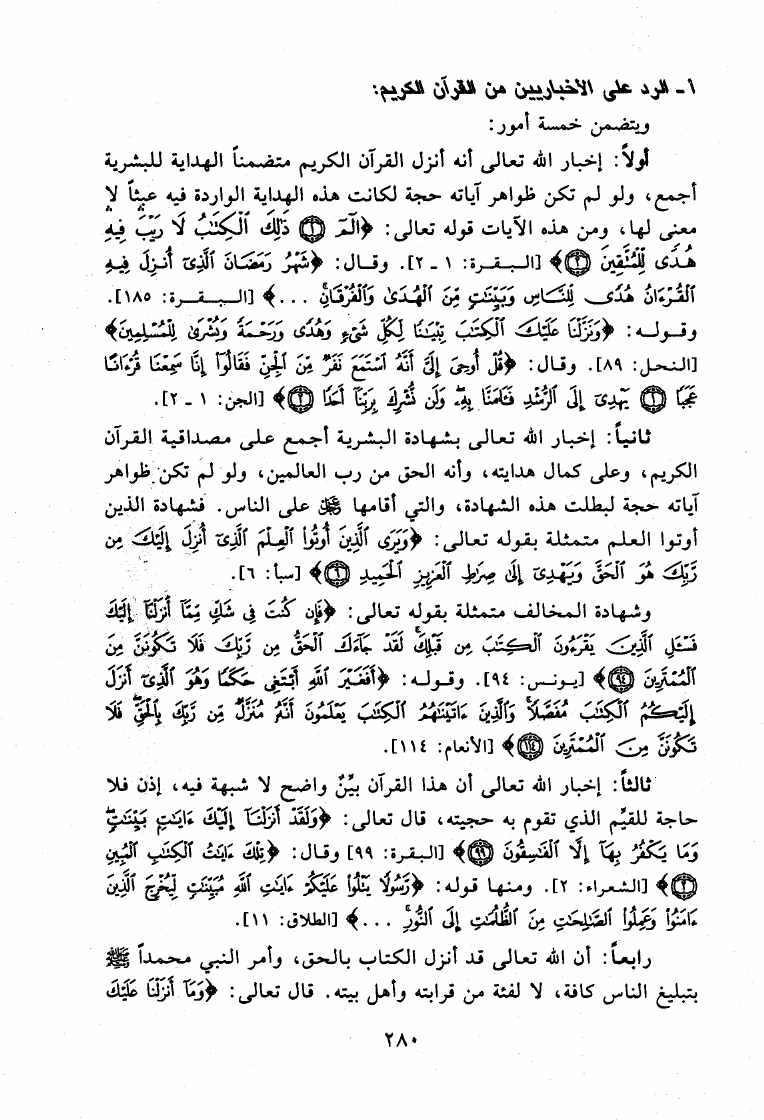 ١ ـ الرد على الأخباريين من القرآن الكريم:
ويتضمن خمسة أمور:
أولاً: إخبار الله تعالى أنه أنزل القرآن الكريم متضمناً الهداية للبشرية
أجمع، ولو لم تكن ظواهر آياته حجة لكانت هذه الهداية الواردة فيه عبثاً لا
معنى لها، ومن هذه الآيات قوله تعالى: ﴿الٓمٓ ۝١ ذَٰلِكَ ٱلْكِتَٰبُ لَا رَيْبَ فِيهِ
هُدًى لِّلْمُتَّقِينَ ۝٢﴾ [البقرة: ١ ـ ٢]. وقال: ﴿شَهْرُ رَمَضَانَ ٱلَّذِىٓ أُنزِلَ فِيهِ
ٱلْقُرْءَانُ هُدًى لِّلنَّاسِ وَبَيِّنَٰتٍ مِّنَ ٱلْهُدَىٰ وَٱلْفُرْقَانِ ۚ ...﴾ [البقرة: ١٨٥].
وقوله: ﴿وَنَزَّلْنَا عَلَيْكَ ٱلْكِتَٰبَ تِبْيَٰنًا لِّكُلِّ شَىْءٍ وَهُدًى وَرَحْمَةً وَبُشْرَىٰ لِلْمُسْلِمِينَ﴾
[النحل: ٨٩]. وقال: ﴿قُلْ أُوحِىَ إِلَىَّ أَنَّهُ ٱسْتَمَعَ نَفَرٌ مِّنَ ٱلْجِنِّ فَقَالُوٓا۟ إِنَّا سَمِعْنَا قُرْءَانًا
عَجَبًا ۝١ يَهْدِىٓ إِلَى ٱلرُّشْدِ فَـَٔامَنَّا بِهِۦ ۖ وَلَن نُّشْرِكَ بِرَبِّنَآ أَحَدًا ۝٢﴾ [الجن: ١ ـ ٢].
ثانياً: إخبار الله تعالى بشهادة البشرية أجمع على مصداقية القرآن
الكريم، وعلى كمال هدايته، وأنه الحق من رب العالمين، ولو لم تكن ظواهر
آياته حجة لبطلت هذه الشهادة، والتي أقامها ﷺ على الناس. فشهادة الذين
أوتوا العلم متمثلة بقوله تعالى: ﴿وَيَرَى ٱلَّذِينَ أُوتُوا۟ ٱلْعِلْمَ ٱلَّذِىٓ أُنزِلَ إِلَيْكَ مِن
رَّبِّكَ هُوَ ٱلْحَقَّ وَيَهْدِىٓ إِلَىٰ صِرَٰطِ ٱلْعَزِيزِ ٱلْحَمِيدِ ۝٦﴾ [سبأ: ٦].
وشهادة المخالف متمثلة بقوله تعالى: ﴿فَإِن كُنتَ فِى شَكٍّ مِّمَّآ أَنزَلْنَآ إِلَيْكَ
فَسْـَٔلِ ٱلَّذِينَ يَقْرَءُونَ ٱلْكِتَٰبَ مِن قَبْلِكَ ۚ لَقَدْ جَآءَكَ ٱلْحَقُّ مِن رَّبِّكَ فَلَا تَكُونَنَّ مِنَ
ٱلْمُمْتَرِينَ ۝٩٤﴾ [يونس: ٩٤]. وقوله: ﴿أَفَغَيْرَ ٱللَّهِ أَبْتَغِى حَكَمًا وَهُوَ ٱلَّذِىٓ أَنزَلَ
إِلَيْكُمُ ٱلْكِتَٰبَ مُفَصَّلًا ۚ وَٱلَّذِينَ ءَاتَيْنَٰهُمُ ٱلْكِتَٰبَ يَعْلَمُونَ أَنَّهُ مُنَزَّلٌ مِّن رَّبِّكَ بِٱلْحَقِّ ۖ فَلَا
تَكُونَنَّ مِنَ ٱلْمُمْتَرِينَ ۝١١٤﴾ [الأنعام: ١١٤].
ثالثاً: إخبار الله تعالى أن هذا القرآن بيِّنٌ واضح لا شبهة فيه، إذن فلا
حاجة للقيِّم الذي تقوم به حجيته، قال تعالى: ﴿وَلَقَدْ أَنزَلْنَآ إِلَيْكَ ءَايَٰتٍۭ بَيِّنَٰتٍ ۖ
وَمَا يَكْفُرُ بِهَآ إِلَّا ٱلْفَٰسِقُونَ ۝٩٩﴾ [البقرة: ٩٩] وقال: ﴿تِلْكَ ءَايَٰتُ ٱلْكِتَٰبِ ٱلْمُبِينِ
۝٢﴾ [الشعراء: ٢]. ومنها قوله: ﴿رَّسُولًا يَتْلُوا۟ عَلَيْكُمْ ءَايَٰتِ ٱللَّهِ مُبَيِّنَٰتٍ لِّيُخْرِجَ ٱلَّذِينَ
ءَامَنُوا۟ وَعَمِلُوا۟ ٱلصَّٰلِحَٰتِ مِنَ ٱلظُّلُمَٰتِ إِلَى ٱلنُّورِ ۚ ...﴾ [الطلاق: ١١].
رابعاً: أن الله تعالى قد أنزل الكتاب بالحق، وأمر النبي محمداً ﷺ
بتبليغ الناس كافة، لا لفئة من قرابته وأهل بيته. قال تعالى: ﴿وَمَآ أَنزَلْنَا عَلَيْكَ
٢٨٠